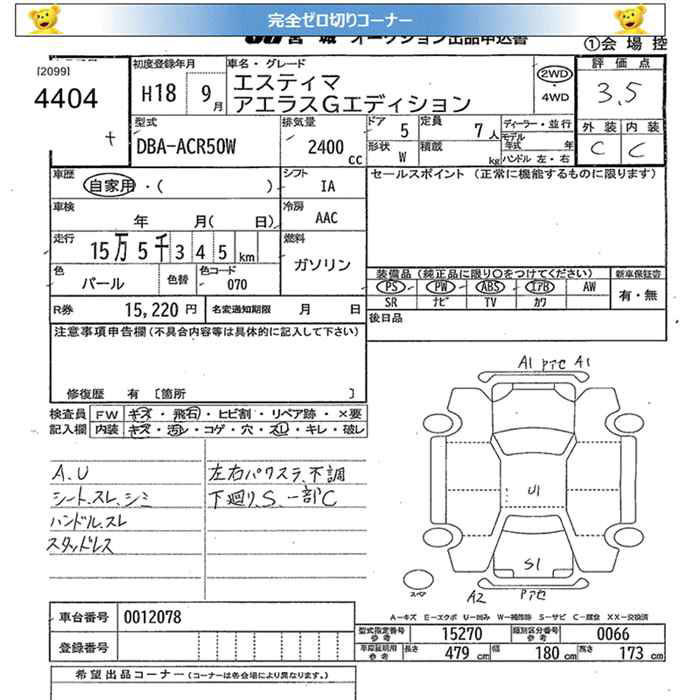 完全ゼロ切りコーナー
宮城 オークション出品申込書
①会場控
[2099]
4404
初度登録年月
H18 9月
車名・グレード
エスティマ
アエラスGエディション
2WD
・
4WD
評価点
3.5
外装 内装
C C
型式
DBA-ACR50W
排気量
2400 cc
ドア 5
形状 W
定員 7人
積載 kg
ディーラー・並行
モデル年式 年
ハンドル 左・右
車歴
自家用・( )
シフト
IA
セールスポイント (正常に機能するものに限ります)
車検
年 月( 日)
冷房
AAC
走行
15万5千345km
燃料
ガソリン
色
パール
色替
色コード
070
装備品 (純正品に限り〇をつけてください)
新車保証書
PS PW ABS エアB AW
SR ナビ TV カワ
有・無
R券 15,220円
名変通知期限 月 日
後日品
注意事項申告欄 (不具合内容等は具体的に記入して下さい)
修復歴 有 [箇所 ]
検査員
記入欄
FW キズ・飛石・ヒビ割・リペア跡・×要
内装 キズ・汚レ・コゲ・穴・スレ・キレ・破レ
A.U
シート、スレ、シミ
ハンドル、スレ
スタッドレス
左右パワスラ、不調
下廻り、S、一部C
A1 PTセ A1
U1
S1
スペア
A2 PTセ
A−キズ E−エクボ U−凹み W−補修跡 S−サビ C−腐食 XX−交換済
車台番号 0012078
登録番号
型式指定番号
参考
15270
類別区分番号
参考
0066
車庫証明用
参考
長さ 479cm
幅 180cm
高さ 173cm
希望出品コーナー (コーナーは各会場により異なります。)